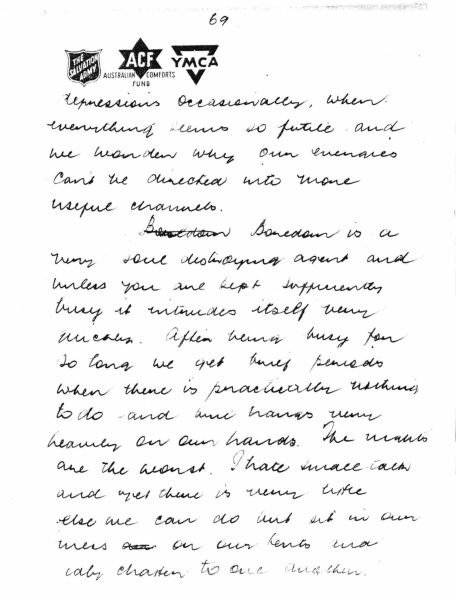 69
THE SALVATION ARMY ACF YMCA
AUSTRALIAN COMFORTS FUND
depressions occasionally, when
everything seems so futile and
we wonder why our energies
can't be directed into more
useful channels.
Boredom Boredom is a
very soul destroying agent and
unless you are kept sufficiently
busy it intrudes itself very
quickly. After being busy for
so long we get brief periods
when there is practically nothing
to do and time hangs very
heavily on our hands. The nights
are the worst. I hate small talk
and yet there is very little
else we can do but sit in our
mess or our tents and
idly chatter to one another.